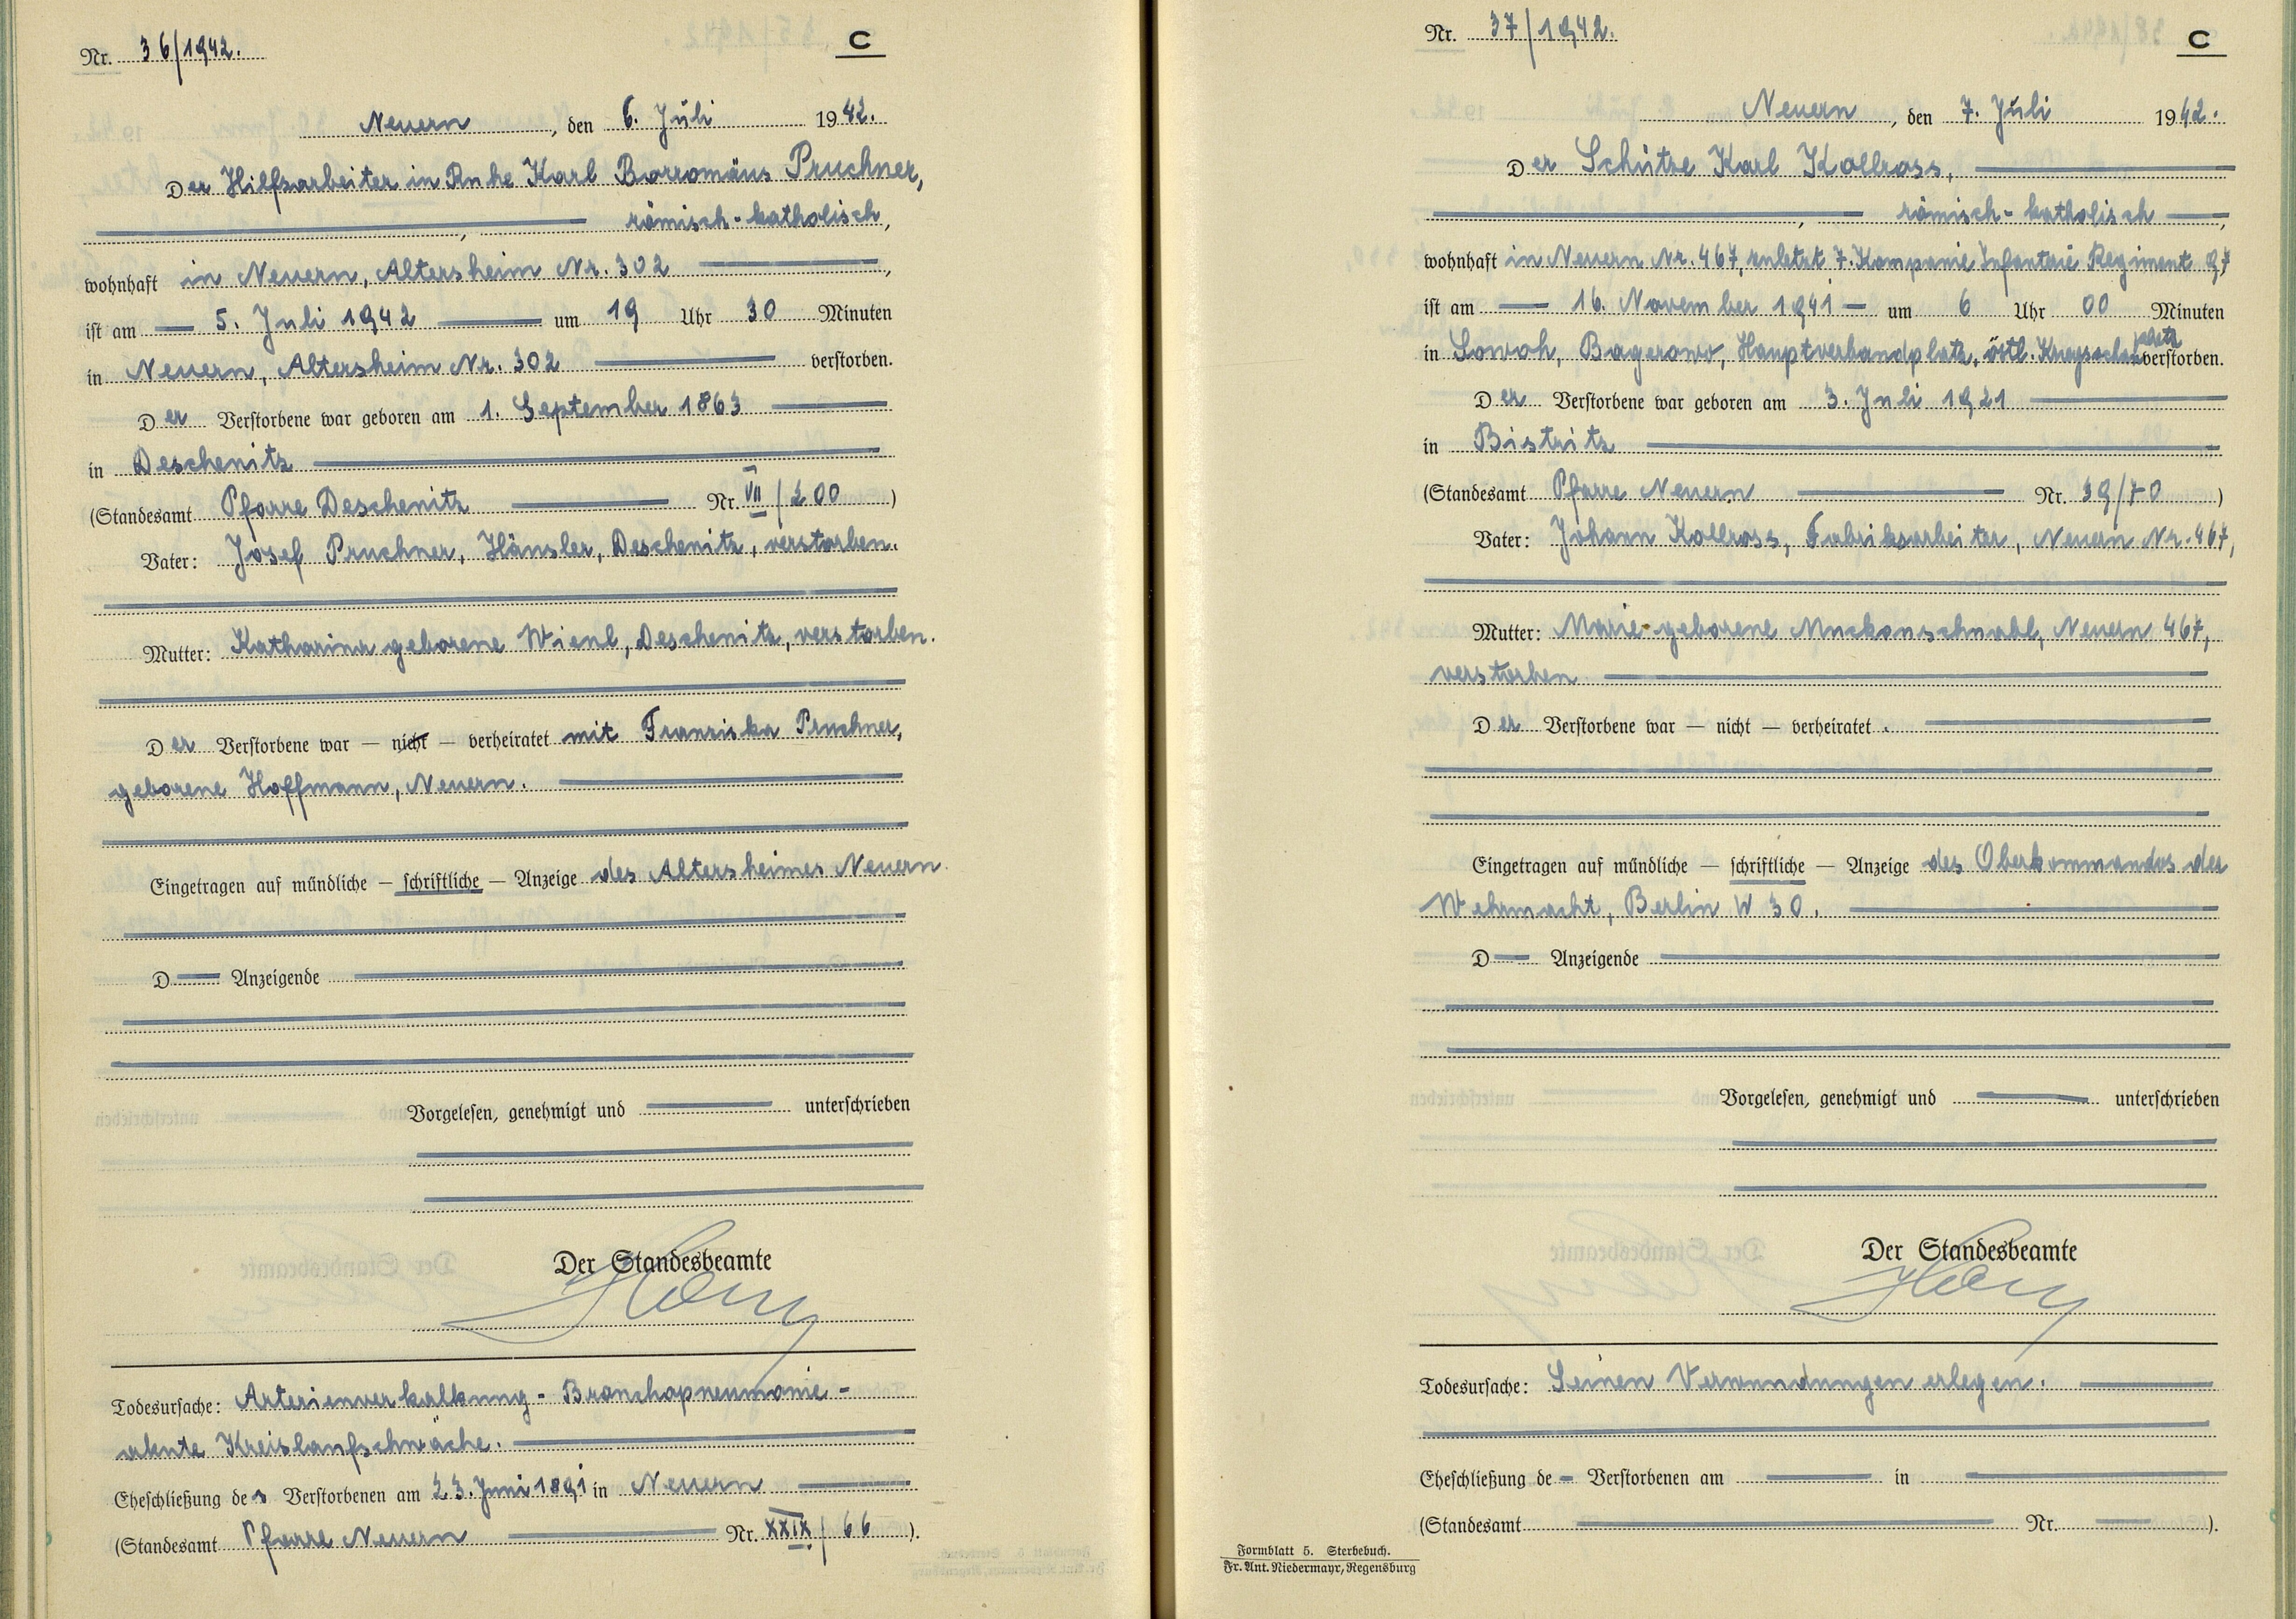 Nr. 36/1942. C
Neuern, den 6. Juli 1942.
Der Hilfsarbeiter in Ruhe Karl Borromäus Pruchner,
, römisch-katholisch,
wohnhaft in Neuern, Altersheim Nr. 302,
ist am 5. Juli 1942 um 19 Uhr 30 Minuten
in Neuern, Altersheim Nr. 302 verstorben.
Der Verstorbene war geboren am 1. September 1863
in Deschenitz
(Standesamt Pfarre Deschenitz Nr. VII/200)
Vater: Josef Pruchner, Häusler, Deschenitz, verstorben.
Mutter: Katharina geborene Wienl, Deschenitz, verstorben.
Der Verstorbene war — nicht — verheiratet mit Franziska Pruchner,
geborene Hoffmann, Neuern.
Eingetragen auf mündliche — schriftliche — Anzeige des Altersheimes Neuern
D Anzeigende
Vorgelesen, genehmigt und unterschrieben
Der Standesbeamte
Todesursache: Arterienverkalkung - Bronchopneumonie -
akute Kreislaufschwäche.
Eheschließung des Verstorbenen am 23. Juni 1891 in Neuern
(Standesamt Pfarre Neuern Nr. XXIX/66).
Nr. 37/1942. C
Neuern, den 7. Juli 1942.
Der Schütze Karl Kollross,
, römisch-katholisch,
wohnhaft in Neuern Nr. 467, zuletzt 7. Kompanie Infanterie Regiment 97
ist am 16. November 1941 um 6 Uhr 00 Minuten
in Bagerowo, Hauptverbandplatz, östl. Kriegsschauplatz verstorben.
Der Verstorbene war geboren am 3. Juli 1921
in Bistritz
(Standesamt Pfarre Neuern Nr. 39/70)
Vater: Johann Kollross, Fabriksarbeiter, Neuern Nr. 467,
Mutter: Marie geborene Muckenschnabl, Neuern 467,
verstorben
Der Verstorbene war — nicht — verheiratet.
Eingetragen auf mündliche — schriftliche — Anzeige des Oberkommandos der
Wehrmacht, Berlin W 30.
D Anzeigende
Vorgelesen, genehmigt und unterschrieben
Der Standesbeamte
Todesursache: Seinen Verwundungen erlegen.
Eheschließung de Verstorbenen am in
(Standesamt Nr. ).
Formblatt 5. Sterbebuch.
Fr. Ant. Niedermayr, Regensburg